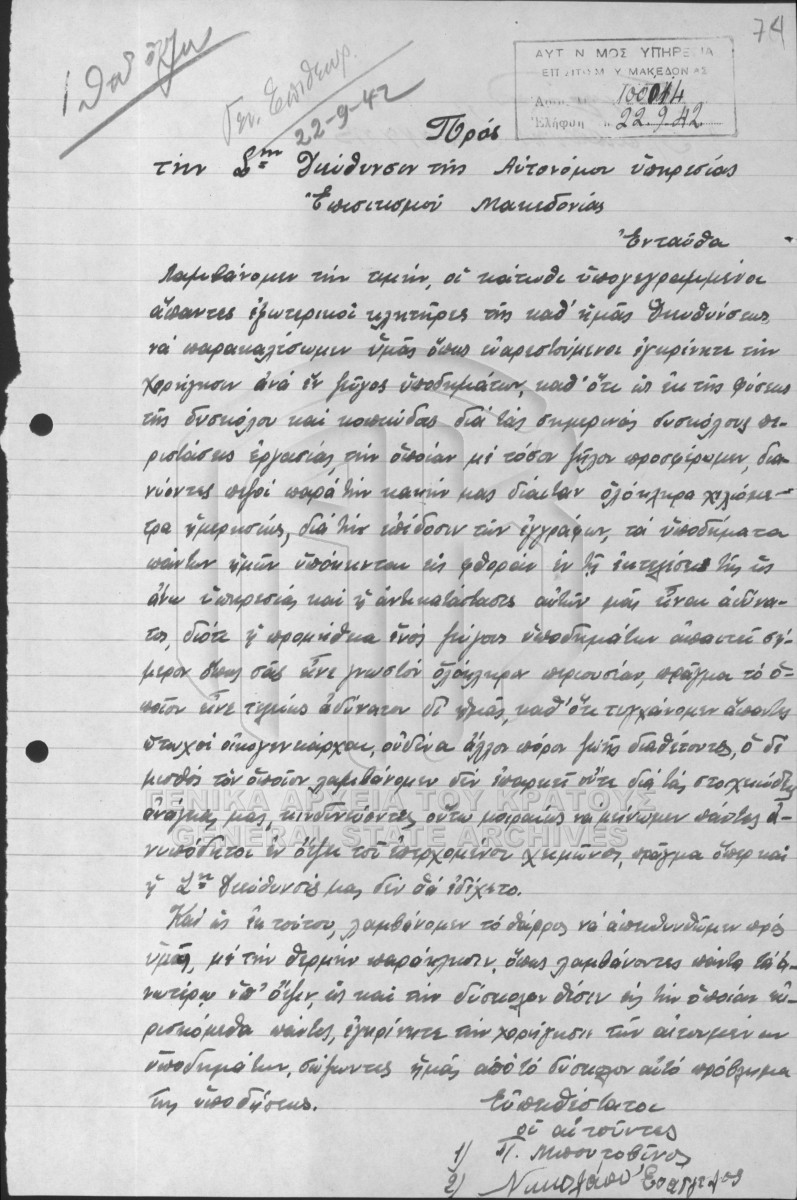 74
ΑΥΤ Ν ΜΟΣ ΥΠΗΡΕΣΙΑ
ΕΠΙΣΙΤΙΣΜ Υ ΜΑΚΕΔΟΝΙΑΣ
22.9.42
Γεν. Ἐπιθεωρ.
22-9-42
Πρός
τὴν Σ. Διεύθυνσιν τῆς Αὐτονόμου ὑπηρεσίας
Ἐπισιτισμοῦ Μακεδονίας
Ἐνταῦθα
Λαμβάνομεν τὴν τιμήν, οἱ κάτωθι ὑπογεγραμμένοι
ἅπαντες ἐξωτερικοί κλητῆρες τῆς καθ' ἡμᾶς Διευθύνσεως,
νά παρακαλέσωμεν ὑμᾶς ὅπως εὐαρεστούμενοι ἐγκρίνητε τήν
χορήγησιν ἀνά ἕν ζεῦγος ὑποδημάτων, καθ' ὅτι ὡς ἐκ τῆς φύσεως
τῆς δυσκόλου καί κοπιώδους διά τάς σημερινάς δυσκόλους πε-
ριστάσεις ἐργασίας, τήν ὁποίαν μέ τόσον ζῆλον προσφέρωμεν, δια-
νύοντες πεζοί παρά τήν κακήν μας δίαιταν ὁλόκληρα χιλιόμε-
τρα ἡμερησίως, διά τήν ἐπίδοσιν τῶν ἐγγράφων, τά ὑποδήματα
πάντων ἡμῶν ὑπόκεινται εἰς φθοράν ἐν τῇ ἐκτελέσει τῆς ὡς
ἄνω ὑπηρεσίας καί ἡ ἀντικατάστασις αὐτῶν μᾶς εἶναι ἀδύνα-
τος, διότι ἡ προμήθεια ἑνός ζεύγους ὑποδημάτων ἀπαιτεῖ σή-
μερον ὅπως σᾶς εἶνε γνωστόν ὁλόκληρον περιουσίαν, πρᾶγμα τό ὁ-
ποῖον εἶνε τελείως ἀδύνατον δι' ἡμᾶς, καθ' ὅτι τυγχάνομεν ἅπαντες
πτωχοί οἰκογενειάρχαι, οὐδένα ἄλλον πόρον ζωῆς διαθέτοντες, ὁ δέ
μισθός τόν ὁποῖον λαμβάνομεν δέν ἐπαρκεῖ οὔτε διά τάς στοιχειώδεις
ἀνάγκας μας, κινδυνεύοντες οὕτω μοιραίως νά μείνωμεν πάντες ἀ-
νυπόδητοι ἐν ὄψει τοῦ ἐπερχομένου χειμῶνος, πρᾶγμα ὅπερ καί
ἡ Σ. Διεύθυνσίς μας δέν θά ἐδέχετο.
Καί ὡς ἐκ τούτου, λαμβάνομεν τό θάρρος νά ἀπευθυνθῶμεν πρός
ὑμᾶς, μέ τήν θερμήν παράκλησιν, ὅπως λαμβάνοντες πάντα τά ἀ-
νωτέρω ὑπ' ὄψιν, ὡς καί τήν δύσκολον θέσιν εἰς τήν ὁποίαν εὑ-
ρισκόμεθα πάντες, ἐγκρίνητε τήν χορήγησιν τῶν αἰτουμένων
ὑποδημάτων, σώζοντες ἡμᾶς ἀπό τό δύσκολον αὐτό πρόβλημα
τῆς ὑποδήσεως.
Εὐπειθέστατοι
οἱ αἰτοῦντες
1) Π. Μπουτοβῖνος
2) Νικολάου
ΓΕΝΙΚΑ ΑΡΧΕΙΑ ΤΟΥ ΚΡΑΤΟΥΣ
GENERAL STATE ARCHIVES